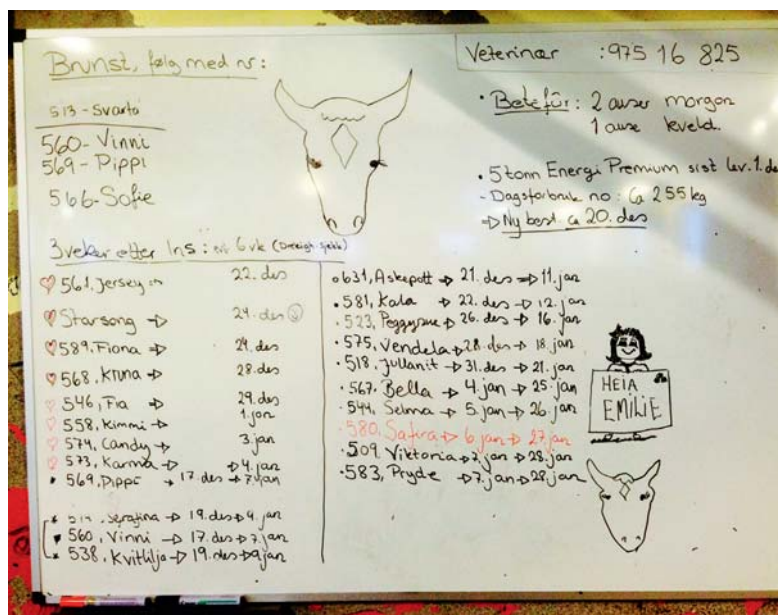 Brunst, følg med nr:
513 - Svarta
560 - Vinni
569 - Pippi
566 - Sofie
Veterinær : 975 16 825
• Betefôr: 2 auser morgon
1 ause kveld.
• 5 tonn Energi Premium sist lev. 1. de
- Dagsforbruk no: Ca 255 kg
→ Ny best. ca 20. des
3 veker etter Ins: 6 vk
561. Jersey 22. des
Starsong → 24. des
589. Fiona → 24. des
568. Kruna → 28. des
546, Fia 29. des
558, Kimmi → 1. jan
574, Candy → 3. jan
573, Karma → → 4. jan
569, Pippi → 17. des → 7. jan
Serafina → 19. des → 9. jan
560, Vinni → 17. des → 7. jan
538, Kvitlilja → 19. des → 9 jan
631, Askepott → 21. des → 11. jan
• 581, Kala → 22. des → 12. jan
• 523, Peggysue → 26. des → 16. jan
• 575, Vendela → 28. des → 18. jan
• 518, Jullanit → 31. des → 21. jan
• 567. Bella → 4. jan → 25. jan
• 544, Selma → 5. jan → 26. jan
• 580, Safira → 6. jan → 27. jan
• 509, Viktoria → 7. jan → 28. jan
• 583, Pryde → 7. jan → 28. jan
HEIA
EMILIE